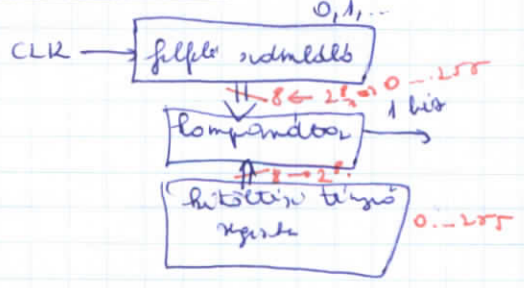 0, 1, ...
CLK felfele számláló
8 ← 2⁸ → 0 ... 255
1 bit
komparátor
8 → 2⁸
kitöltési tényező
regiszter 0 ... 255